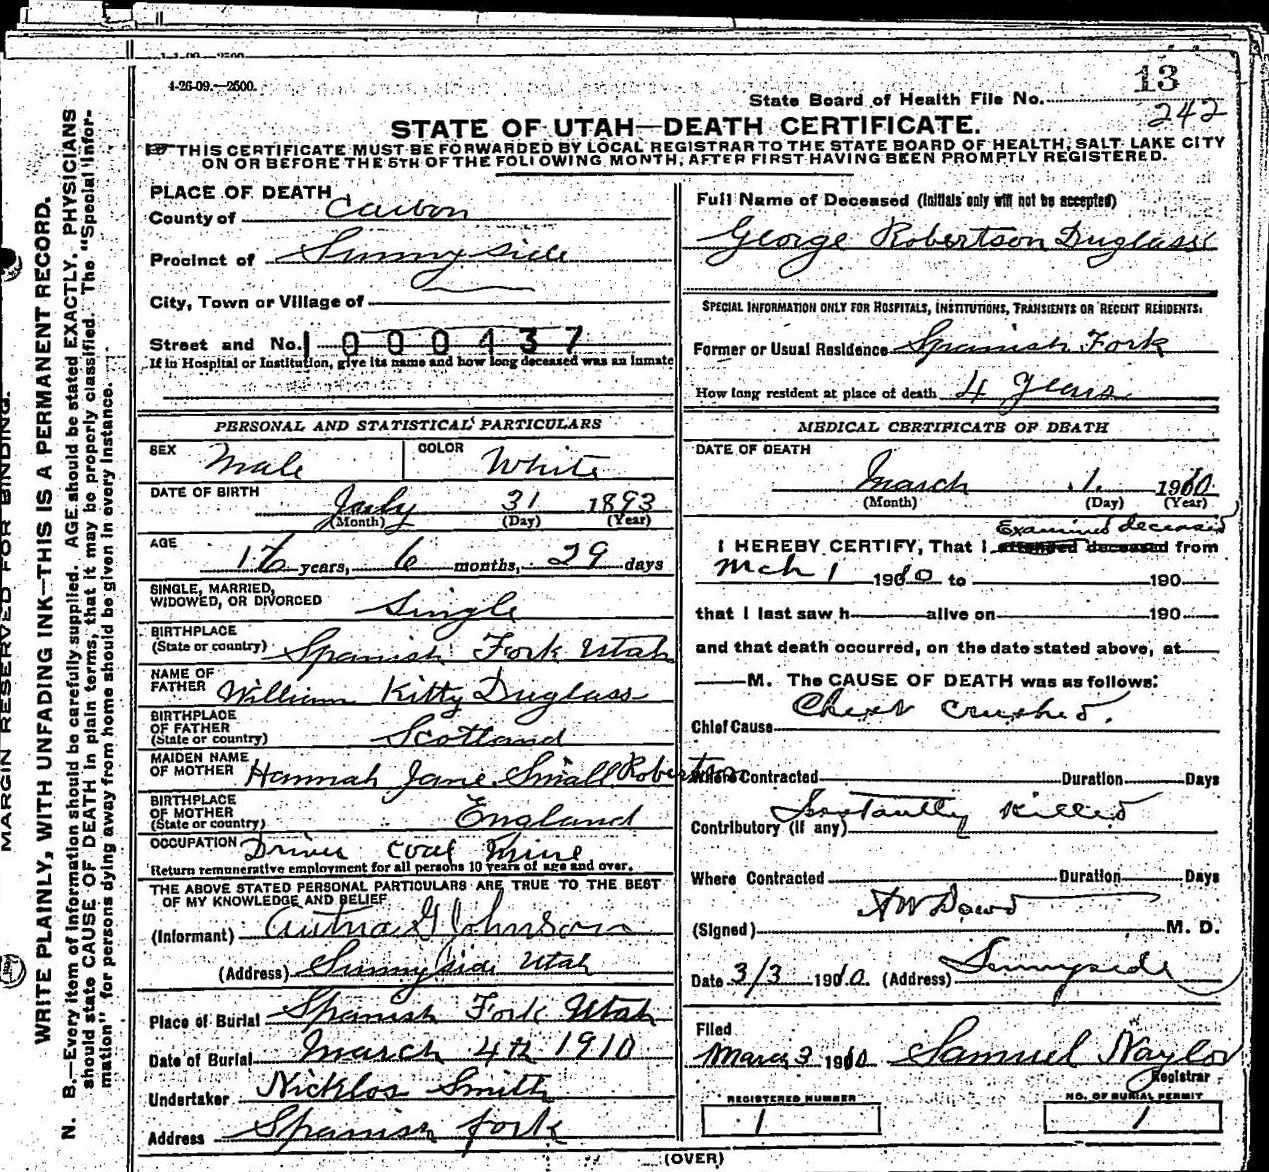 4-26-09.—2500.
13
State Board of Health File No.
242
STATE OF UTAH—DEATH CERTIFICATE.
THIS CERTIFICATE MUST BE FORWARDED BY LOCAL REGISTRAR TO THE STATE BOARD OF HEALTH, SALT LAKE CITY
ON OR BEFORE THE 5TH OF THE FOLLOWING MONTH, AFTER FIRST HAVING BEEN PROMPTLY REGISTERED.
MARGIN RESERVED FOR BINDING.
WRITE PLAINLY, WITH UNFADING INK—THIS IS A PERMANENT RECORD.
N. B.—Every item of information should be carefully supplied. AGE should be stated EXACTLY. PHYSICIANS
should state CAUSE OF DEATH in plain terms, that it may be properly classified. The "Special Infor-
mation" for persons dying away from home should be given in every instance.
PLACE OF DEATH
County of Carbon
Precinct of Sunnyside
City, Town or Village of
Street and No. 000437
If in Hospital or Institution, give its name and how long deceased was an inmate
PERSONAL AND STATISTICAL PARTICULARS
SEX Male COLOR White
DATE OF BIRTH July 31 1893
(Month) (Day) (Year)
AGE 16 years, 6 months, 29 days
SINGLE, MARRIED,
WIDOWED, OR DIVORCED Single
BIRTHPLACE
(State or country) Spanish Fork Utah
NAME OF
FATHER William Kitty Duglass
BIRTHPLACE
OF FATHER
(State or country) Scotland
MAIDEN NAME
OF MOTHER Hannah Jane Small Robertson
BIRTHPLACE
OF MOTHER
(State or country) England
OCCUPATION Driver Coal Mine
Return remunerative employment for all persons 10 years of age and over.
THE ABOVE STATED PERSONAL PARTICULARS ARE TRUE TO THE BEST
OF MY KNOWLEDGE AND BELIEF
(Informant) G Johnson
(Address) Sunnyside Utah
Place of Burial Spanish Fork Utah
Date of Burial March 4th 1910
Undertaker Nicklos Smith
Address Spanish fork
Full Name of Deceased (Initials only will not be accepted)
George Robertson Duglass
SPECIAL INFORMATION ONLY FOR HOSPITALS, INSTITUTIONS, TRANSIENTS OR RECENT RESIDENTS.
Former or Usual Residence Spanish Fork
How long resident at place of death 4 Years
MEDICAL CERTIFICATE OF DEATH
DATE OF DEATH
March 1 1910
(Month) (Day) (Year)
Examined deceased
I HEREBY CERTIFY, That I attended deceased from
Mch 1 1910 to 190
that I last saw h alive on 190
and that death occurred, on the date stated above, at
M. The CAUSE OF DEATH was as follows:
Chief Cause Chest crushed.
Where Contracted Duration Days
Contributory (if any) Instantly Killed
Where Contracted Duration Days
(Signed) A W Dowd M. D.
Date 3/3 1910. (Address) Sunnyside
Filed
March 3 1910 Samuel Naylor
Registrar
REGISTERED NUMBER
1
NO. OF BURIAL PERMIT
1
(OVER)